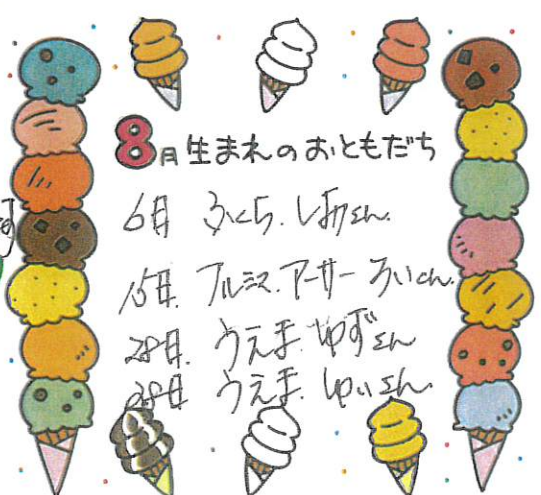 8月生まれのおともだち
6日 ふくら. しほさん.
15日. アルミス. アーサー るいくん.
28日. うえま. ゆずさん
28日 うえま. ゆいさん.